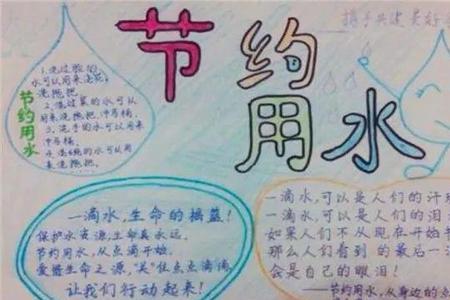 节约用水
携手共建 美好
节约用水
1.洗过脸的
水可以用来浇花,
洗拖把.
2.淘过菜的水可以
用来洗拖把,冲马桶.
3.洗手的水可以用来
冲马桶.
水可以用
来洗拖把.
一滴水,生命的摇篮!
保护水资源,生命真永远.
节约用水,从点滴开始.
爱惜生命之源,"关"住点点滴滴
让我们行动起来!
一滴水,可以是人们的汗
一滴水,可以是人们的泪
如果人们不从现在开始节
那么人们看到的最后一
会是自己的眼泪!
——节约用水,从身边的点